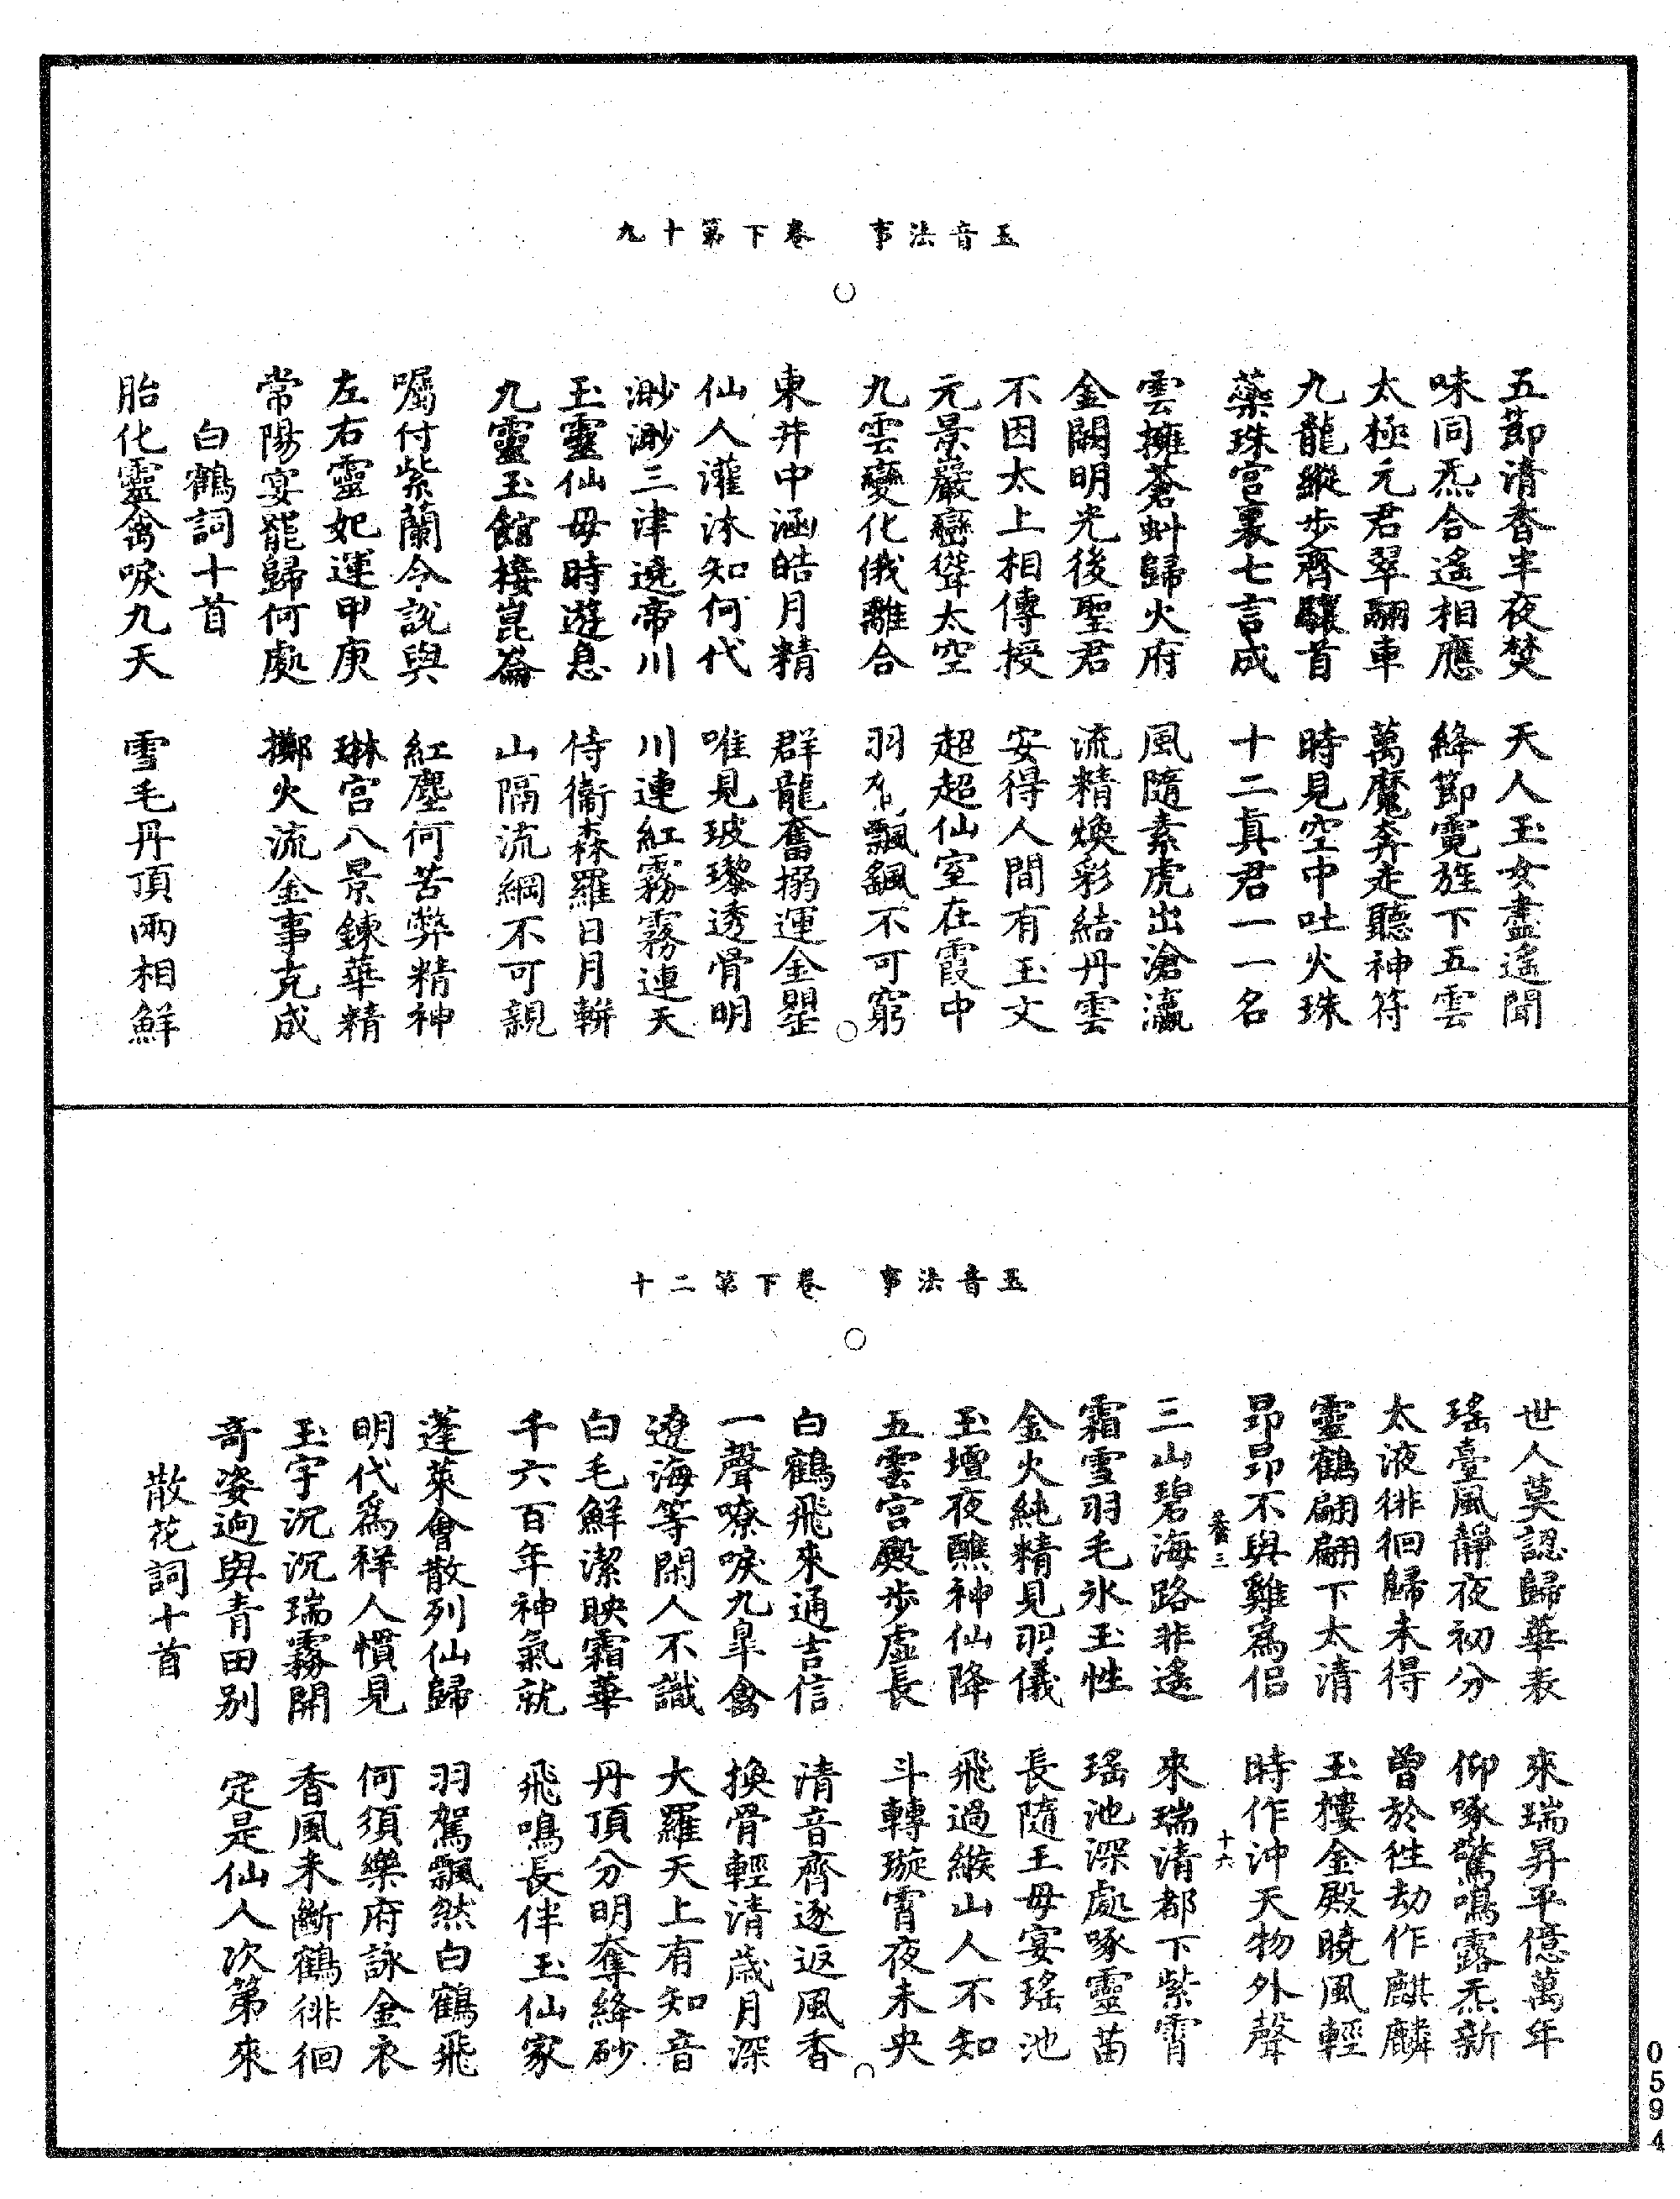 玉音法事　卷下第十九
五節清香半夜焚　天人玉女盡遙聞
味同炁合遙相應　絳節霓旌下五雲
太極元君翠翮車　萬魔奔走聽神符
九龍縱步齊驤首　時見空中吐火珠
蘂珠宮裏七言成　十二真君一一名
雲擁蒼虯歸火府　風隨素虎出滄瀛
金闕明光後聖君　流精煥彩結丹雲
不因太上相傳授　安得人間有玉文
元景巖巒聳太空　超超仙室在霞中
九雲變化俄離合　羽飄颻不可窮
東井中涵皓月精　群龍奮搦運金罌
仙人灌沐知何代　唯見玻瓈透骨明
渺渺三津遶帝川　川連紅霧霧連天
玉靈仙母時遊息　侍衞森羅日月軿
九靈玉館接崑崙　山隔流綱不可親
囑付紫蘭今說與　紅塵何苦弊精神
左右靈妃運甲庚　琳宮八景鍊華精
常陽宴罷歸何處　擲火流金事克成
白鶴詞十首
胎化靈禽唳九天　雪毛丹頂兩相鮮
玉音法事　卷下第二十
世人莫認歸華表　來瑞昇平億萬年
瑤臺風靜夜初分　仰啄驚鳴露炁新
太液徘徊歸未得　曾於徃劫作麒麟
靈鶴翩翩下太清　玉樓金殿曉風輕
昂昂不與雞為侶　時作沖天物外聲
三　十六
三山碧海路非遙　來瑞清都下紫霄
霜雪羽毛氷玉性　瑤池深處啄靈苗
金火純精見羽儀　長隨王母宴瑤池
玉壇夜醮神仙降　飛過緱山人不知
五雲宮殿步虛長　斗轉璇霄夜未央
白鶴飛來通吉信　清音齊逐返風香
一聲嘹唳九皐禽　換骨輕清歲月深
遼海等閑人不識　大羅天上有知音
白毛鮮潔映霜華　丹頂分明奪絳砂
千六百年神氣就　飛鳴長伴玉仙家
蓬萊會散列仙歸　羽駕飄然白鶴飛
明代為祥人慣見　何須樂府詠金衣
玉宇沉沉瑞霧開　香風未斷鶴徘徊
奇姿迥與青田別　定是仙人次第來
散花詞十首
0594